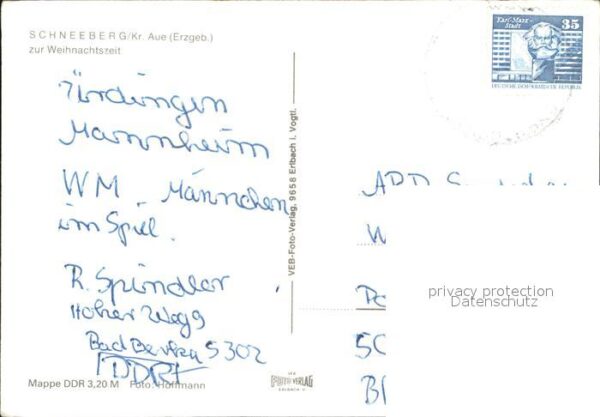 SCHNEEBERG/Kr. Aue (Erzgeb.)
zur Weihnachtszeit
Ürdingen
Mannheim
WM. Männchen
im Spiel.
R. Spindler
Hoher Weg 9
Bad Berka 5302
DDR
Mappe DDR 3,20 M Foto: Hoffmann
VEB-Foto-Verlag, 9658 Erlbach i. Vogtl.
VEB
FOTO VERLAG
ERLBACH V.
Karl-Marx-
Stadt
35
DEUTSCHE DEMOKRATISCHE REPUBLIK
ARD
W
Po
50
privacy protection
Datenschutz